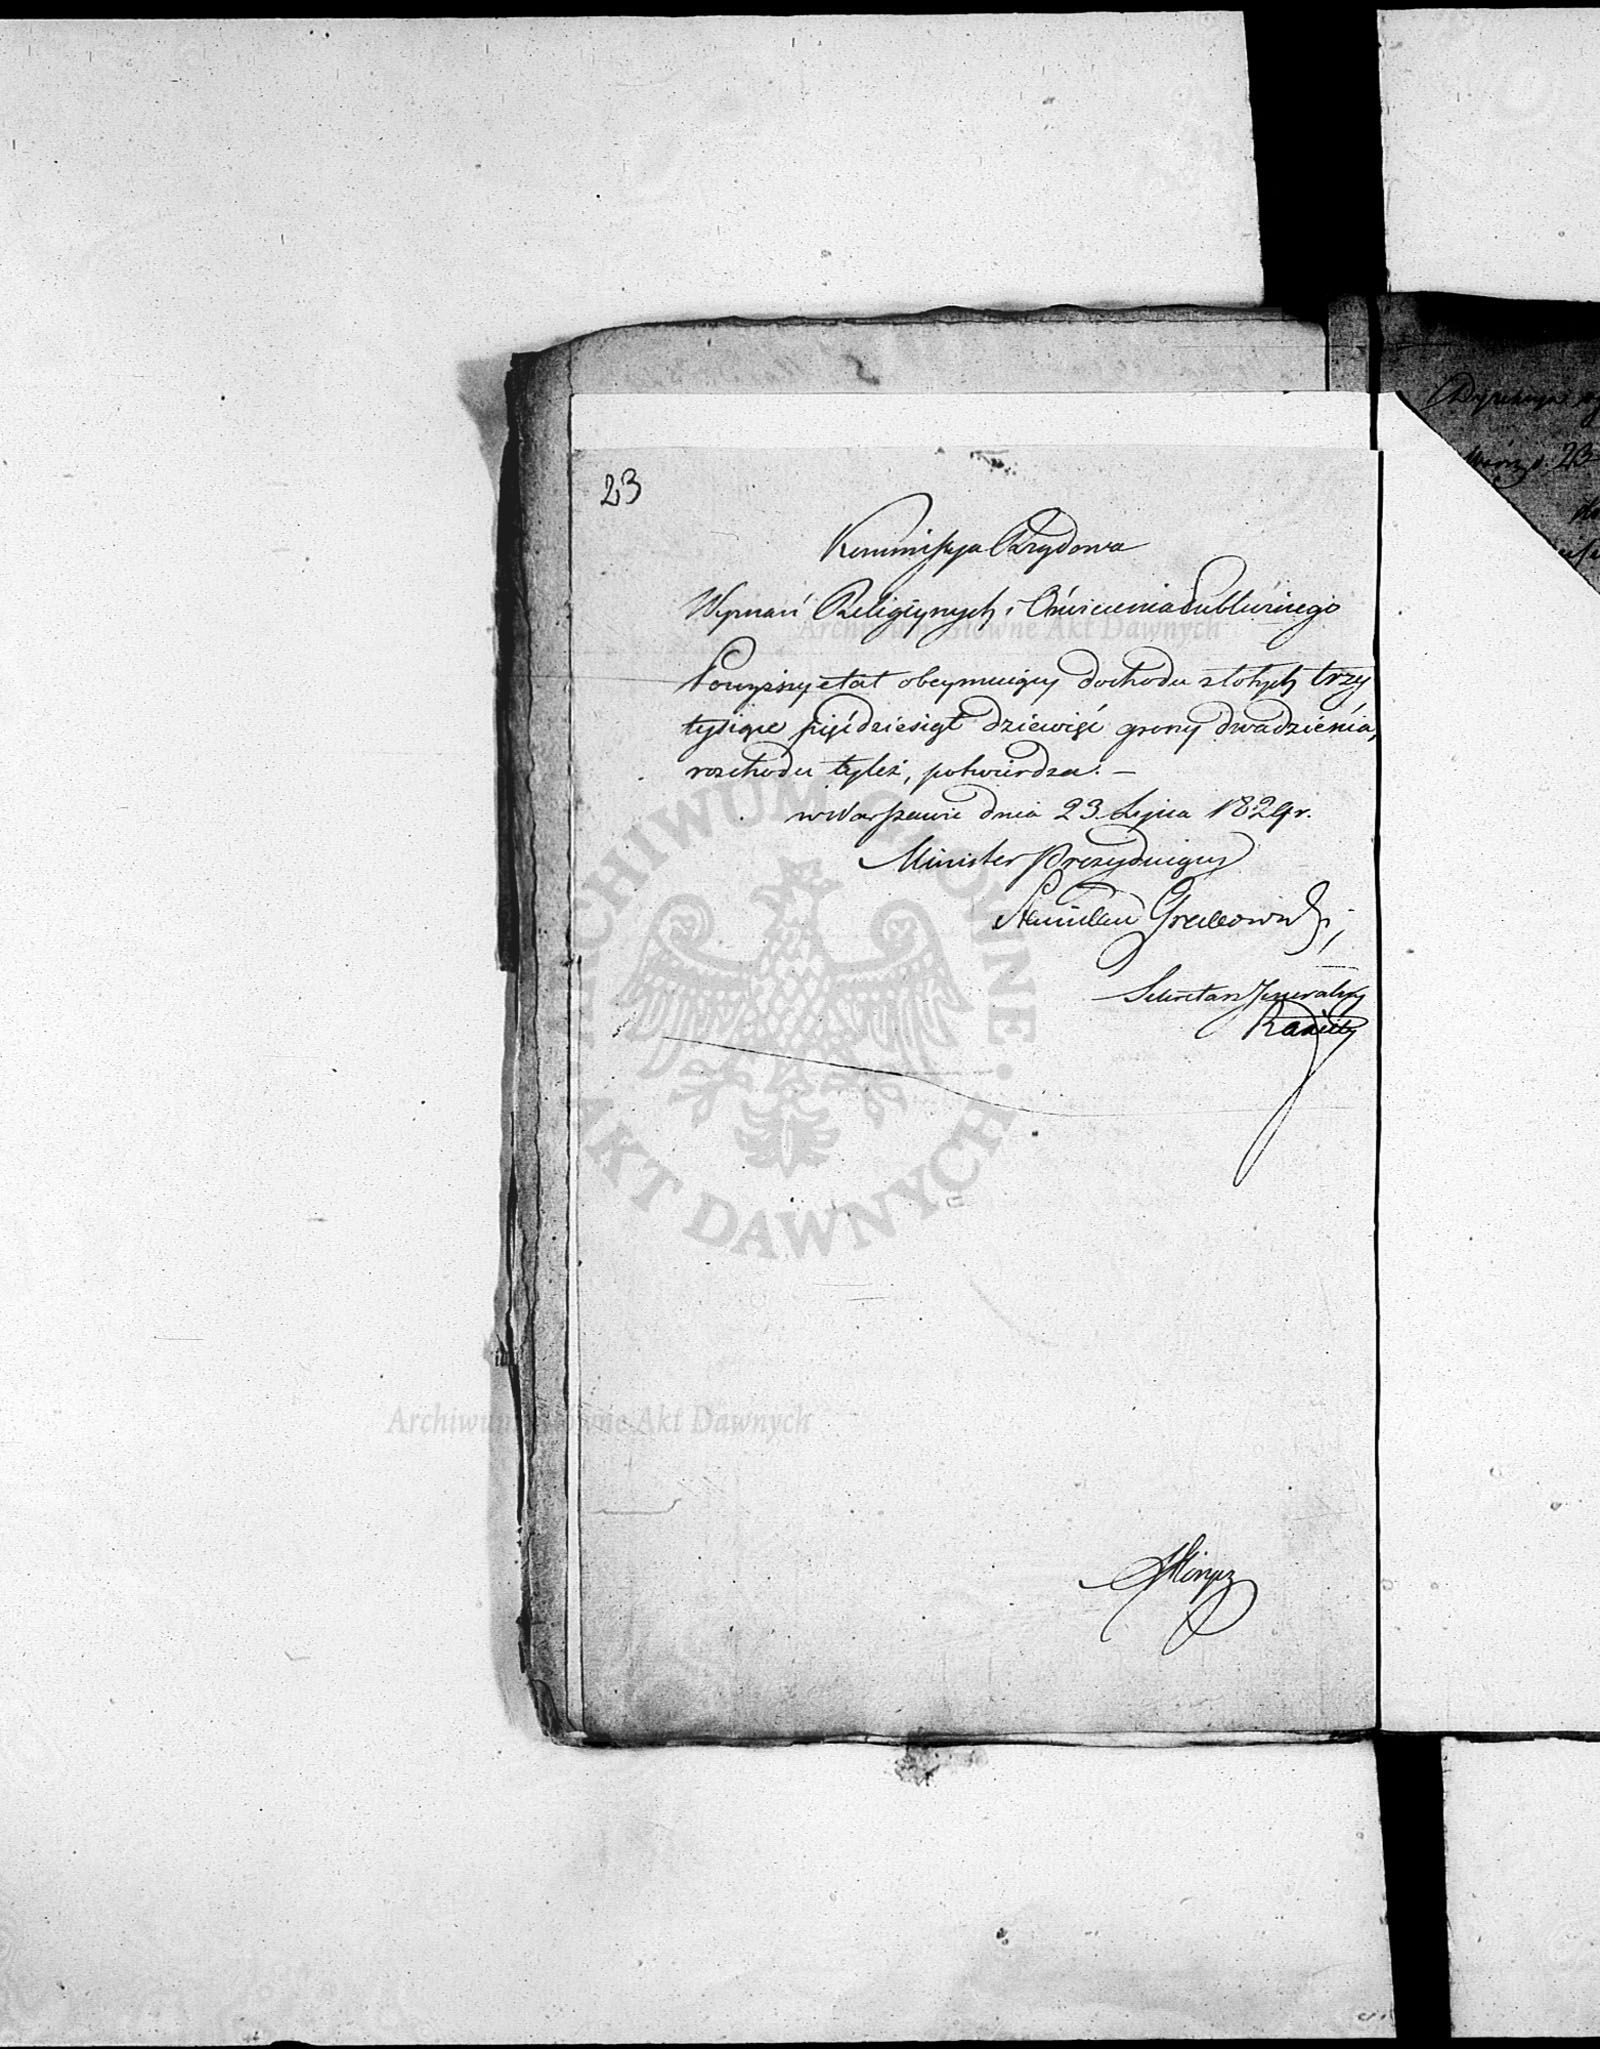 23
Kommissya Rządowa
Wyznań Religiynych i Oświecenia Publicznego
Powyższy etat obeymuiący dochodu złotych trzy
tysiące pięćdziesiąt dziewięć groszy dwadzieścia,
rozchodu tyleż, potwierdza. —
w Warszawie dnia 23 Lipca 1829 r.
Minister Prezyduiący
Stanisław Grabowski
Sekretarz Jeneralny
Archiwum Główne Akt Dawnych
ARCHIWUM GŁÓWNE AKT DAWNYCH
Archiwum Główne Akt Dawnych
23